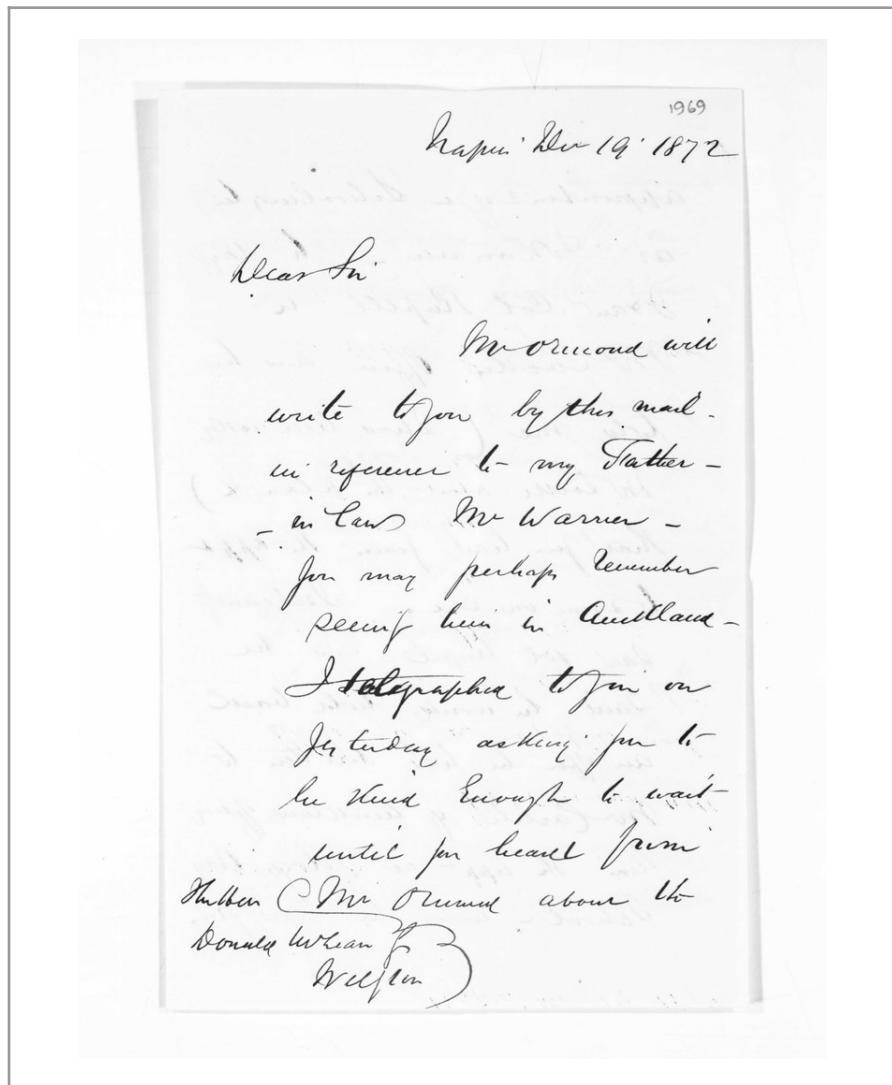 1969
Napier Dec 19. 1872
Dear Sir
Mr Ormond will
write to you by this mail -
in reference to my Father -
- in law Mr Warner -
you may perhaps remember
seeing him in Auckland -
I telegraphed to you on
yesterday asking you to
be kind Enough to wait
until you heard from
Mr Ormond about the
The Hon
Donald McLean
Wellgton